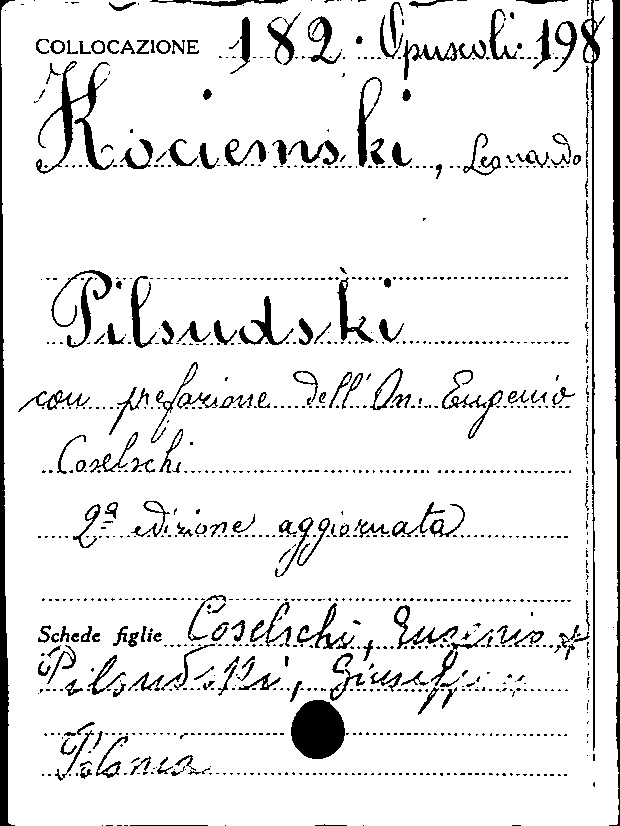 COLLOCAZIONE 182. Opuscoli. 198
Kociemski, Leonardo
Pilsudski
con prefazione dell'On. Eugenio
Coselschi
2ª edizione aggiornata
Schede figlie Coselschi, Eugenio
Pilsudski, Giuseppe
Polonia